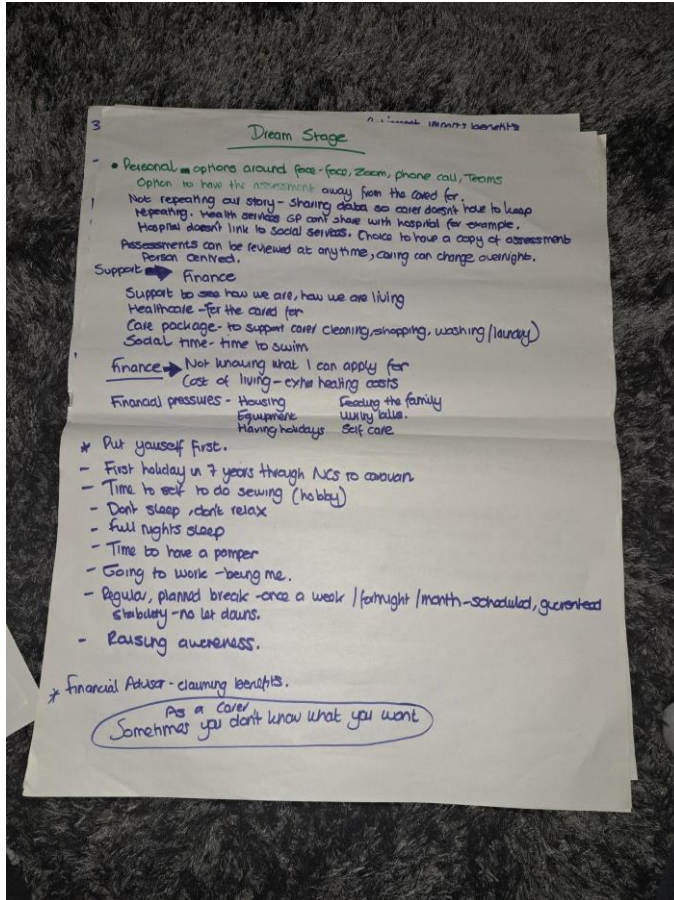 3
impacts benefits
Dream Stage
• Personal - options around face-face, Zoom, phone call, Teams
Option to have the assessment away from the cared for.
Not repeating our story - sharing data so carer doesn't have to keep
repeating. Health services GP can't share with hospital for example.
Hospital doesn't link to social services. Choice to have a copy of assessment
Assessments can be reviewed at anytime, caring can change overnight.
Person centred.
Support → Finance
Support to see how we are, how we are living
Healthcare - for the cared for
Care package - to support carer cleaning, shopping, washing/laundry)
Social time - time to swim
Finance → Not knowing what I can apply for
Cost of living - extra heating costs
Financial pressures - Housing Feeding the family
Equipment Utility bills.
Having holidays Self care
* Put yourself first.
- First holiday in 7 years through NCS to caravan
- Time to self to do sewing (hobby)
- Don't sleep, don't relax
- full nights sleep
- Time to have a pamper
- Going to work - being me.
- Regular, planned break - once a week / fortnight / month - scheduled, guarenteed
stability - no let downs.
- Raising awareness.
* Financial Advisor - claiming benefits.
As a carer
Sometimes you don't know what you want